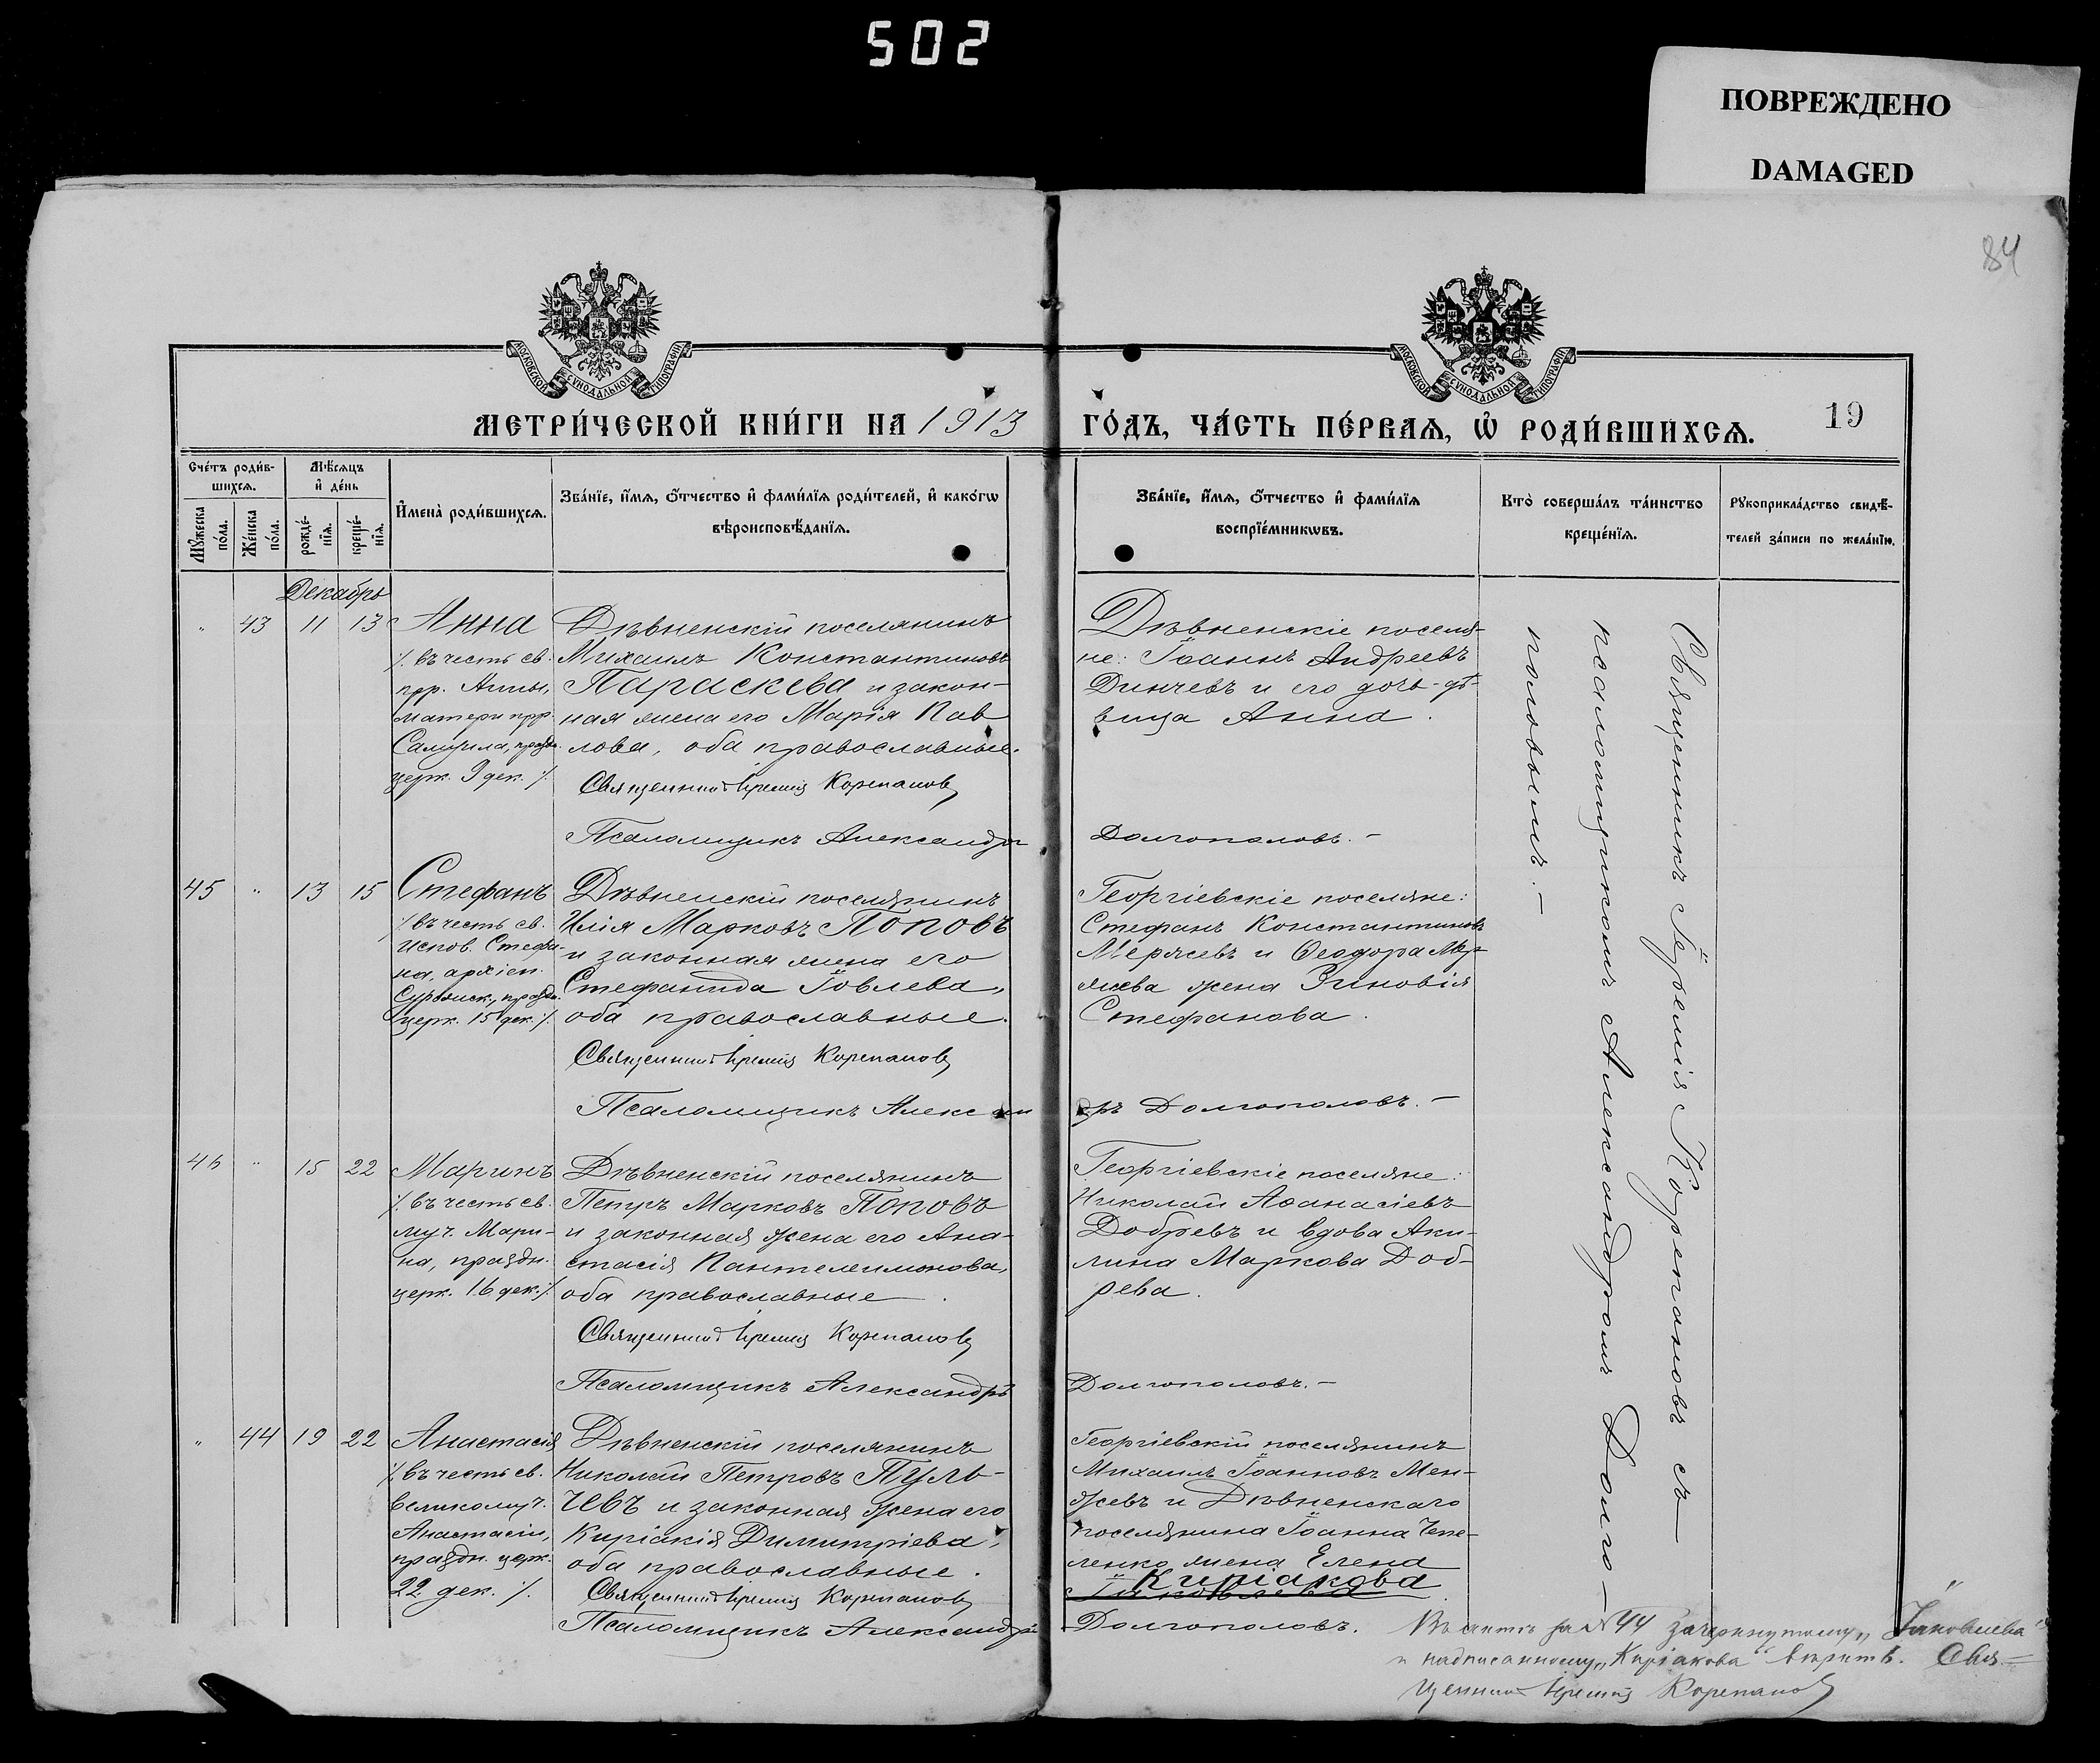 502
ПОВРЕЖДЕНО
DAMAGED
84
МОСКОВСКОЙ СѴНОДАЛЬНОЙ ТИПОГРАФІИ
МОСКОВСКОЙ СѴНОДАЛЬНОЙ ТИПОГРАФІИ
МЕТРИ́ЧЕСКОЙ КНИ́ГИ НА 1913 ГО́ДЪ, ЧА́СТЬ ПЕ́РВАѦ, Ѡ҆ РОДИ́ВШИХСѦ. 19
Сче́тъ роди́в-
шихсѧ.
Мѣ́сѧцъ
и҆ де́нь
Мꙋ́жеска
по́ла.
Же́нска
по́ла.
рожде́-
нїѧ.
креще́-
нїѧ.
И҆мена̀ роди́вшихсѧ.
Зва́нїе, и҆́мѧ, ѻ҆́тчество и҆ фами́лїѧ роди́телей, и҆ како́гѡ
вѣроисповѣ́данїѧ.
Зва́нїе, и҆́мѧ, ѻ҆́тчество и҆ фами́лїѧ
воспрїе́мникѡвъ.
Кто̀ соверша́лъ та́инство
креще́нїѧ.
Рꙋкоприкла́дство свидѣ́-
телей за́писи по жела́нїю.
Декабрь
" 43 11 13 Анна
/. въ честь св.
прр. Анны,
матери прр.
Самуила, праздн.
церк. 9 дек. /.
Дѣвненскій поселянинъ
Михаилъ Константиновъ
Параскева и закон-
ная жена его Марія Пав
лова, оба православные.
Священникъ Іеремія Корепановъ
Псаломщикъ Александръ
Дѣвненскіе поселя-
не: Іоаннъ Андреевъ
Динчевъ и его дочь-дѣ-
вица Анна.
Долгополовъ. –
45 " 13 15 Стефанъ
/. въ честь св.
Испов. Стефа-
на, архіеп.
Сурожск., праздн.
церк. 15 дек. /.
Дѣвненскій поселянинъ
Илія Марковъ Поповъ
и законная жена его
Стефанида Іовлева,
оба православные.
Священникъ Іеремія Корепановъ
Псаломщикъ Алексан
Георгіевскіе поселяне:
Стефанъ Константиновъ
Мержевъ и Ѳеодора Мер-
жева жена Зиновія
Стефанова.
дръ Долгополовъ. –
46 " 15 22 Маринъ
/. въ честь св.
муч. Мари-
на, праздн.
церк. 16 дек. /.
Дѣвненскій поселянинъ
Петръ Марковъ Поповъ
и законная жена его Ана-
стасія Пантелеимонова,
оба православные.
Священникъ Іеремія Корепановъ
Псаломщикъ Александръ
Георгіевскіе поселяне:
Николай Аѳанасіевъ
Добревъ и вдова Аки-
лина Маркова Доб-
рева.
Долгополовъ. –
" 44 19 22 Анастасія
/. въ честь св.
великомуч.
Анастасіи,
праздн. церк.
22 дек. /.
Дѣвненскій поселянинъ
Николай Петровъ Пуль-
чевъ и законная жена его
Киріакія Димитріева,
оба православные.
Священникъ Іеремія Корепановъ
Псаломщикъ Александръ
Георгіевскій поселянинъ
Михаилъ Іоанновъ Мен-
жевъ и Дѣвненскаго
поселянина Іоанна Чепе-
ленко жена Елена
Киріакова
Іаковлева
Долгополовъ.
Священникъ Іеремія Корепановъ съ
псаломщикомъ Александромъ Долго-
половымъ. –
Въ актѣ за № 44 зачеркнутому „Іаковлева"
и надписанному „Киріакова" вѣрить. Свя-
щенникъ Іеремія Корепановъ